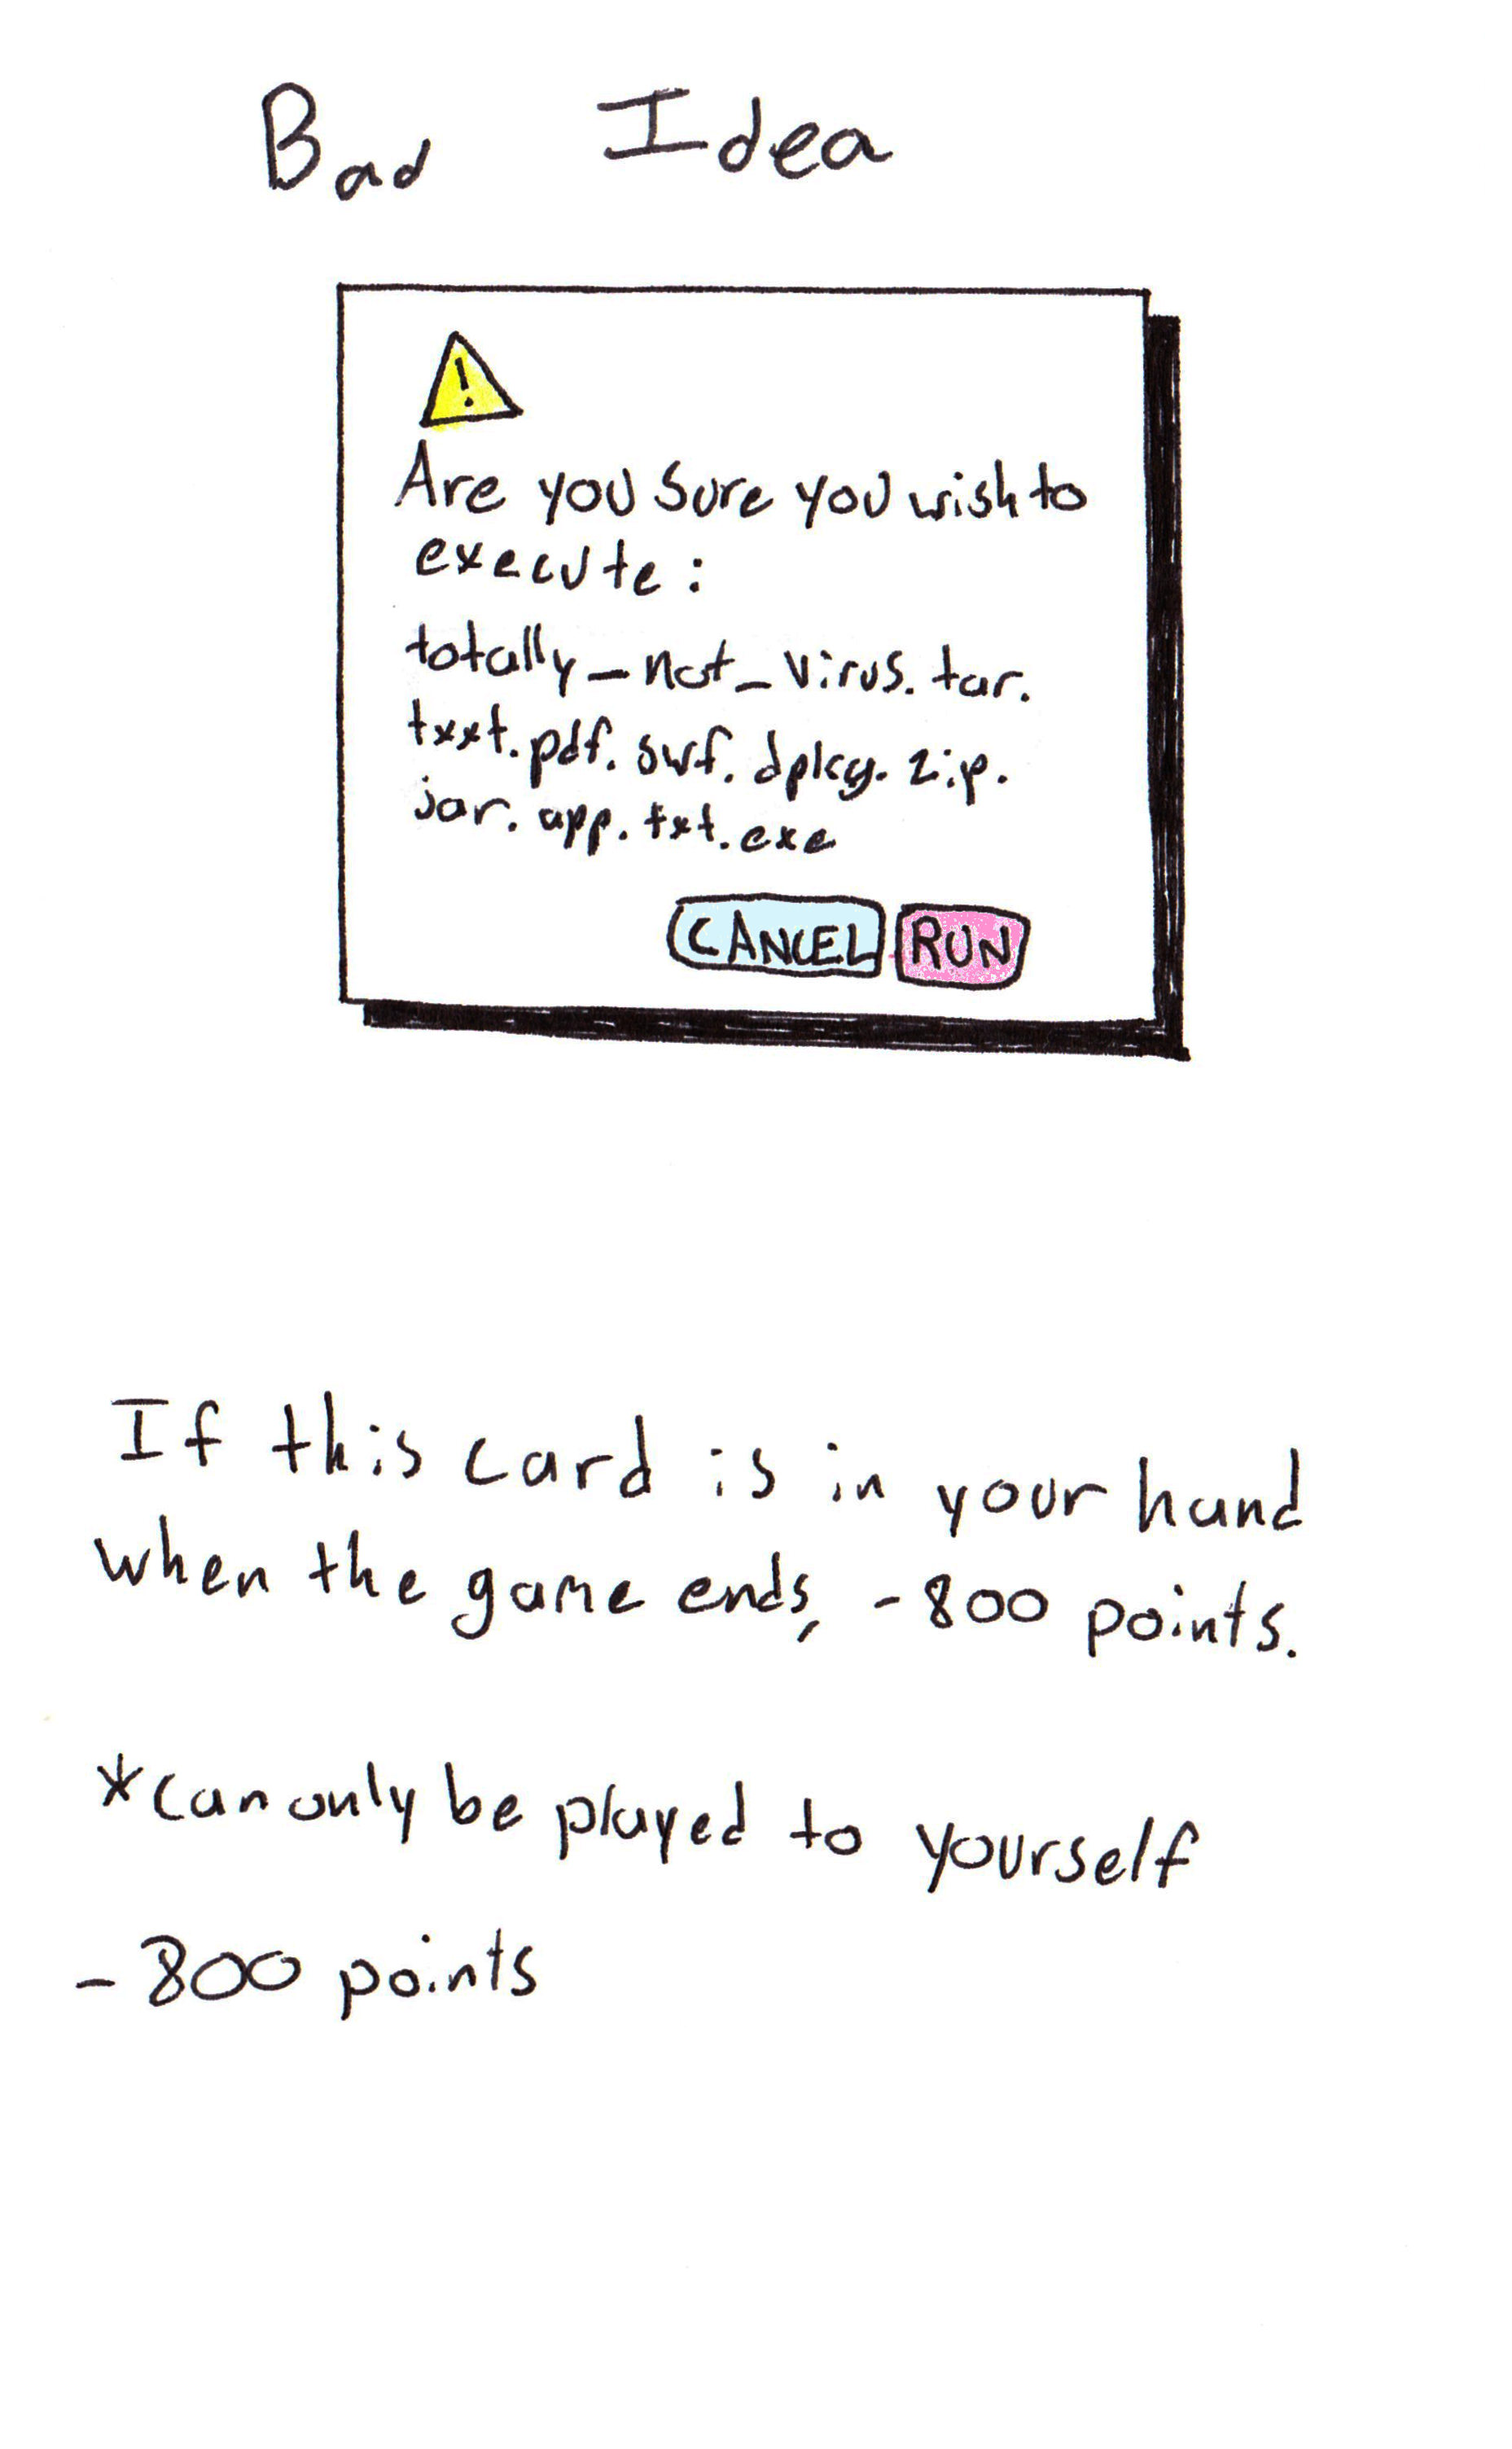 Bad Idea
!
Are you sure you wish to
execute:
totally_not_virus.tar.
txxt.pdf.swf.dpkg.zip.
jar.app.txt.exe
CANCEL RUN
If this card is in your hand
when the game ends, -800 points.
*can only be played to yourself
-800 points